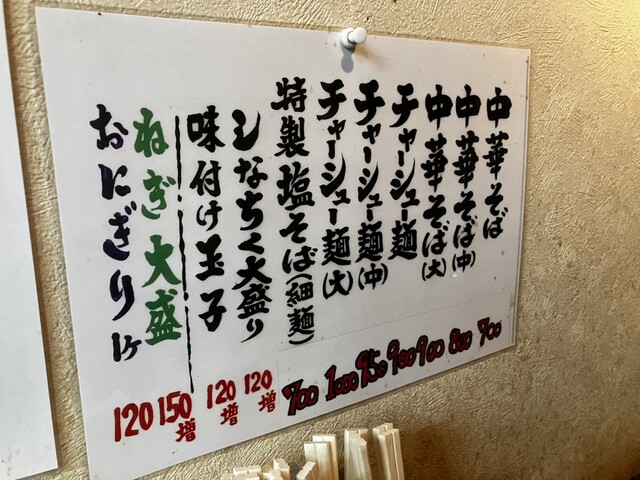 中華そば 700
中華そば(中) 800
中華そば(大) 900
チャーシュー麺 900
チャーシュー麺(中) 950
チャーシュー麺(大) 1000
特製塩そば(細麺) 700
しなちく大盛り 120増
味付け玉子 120増
ねぎ大盛 150増
おにぎり1ケ 120